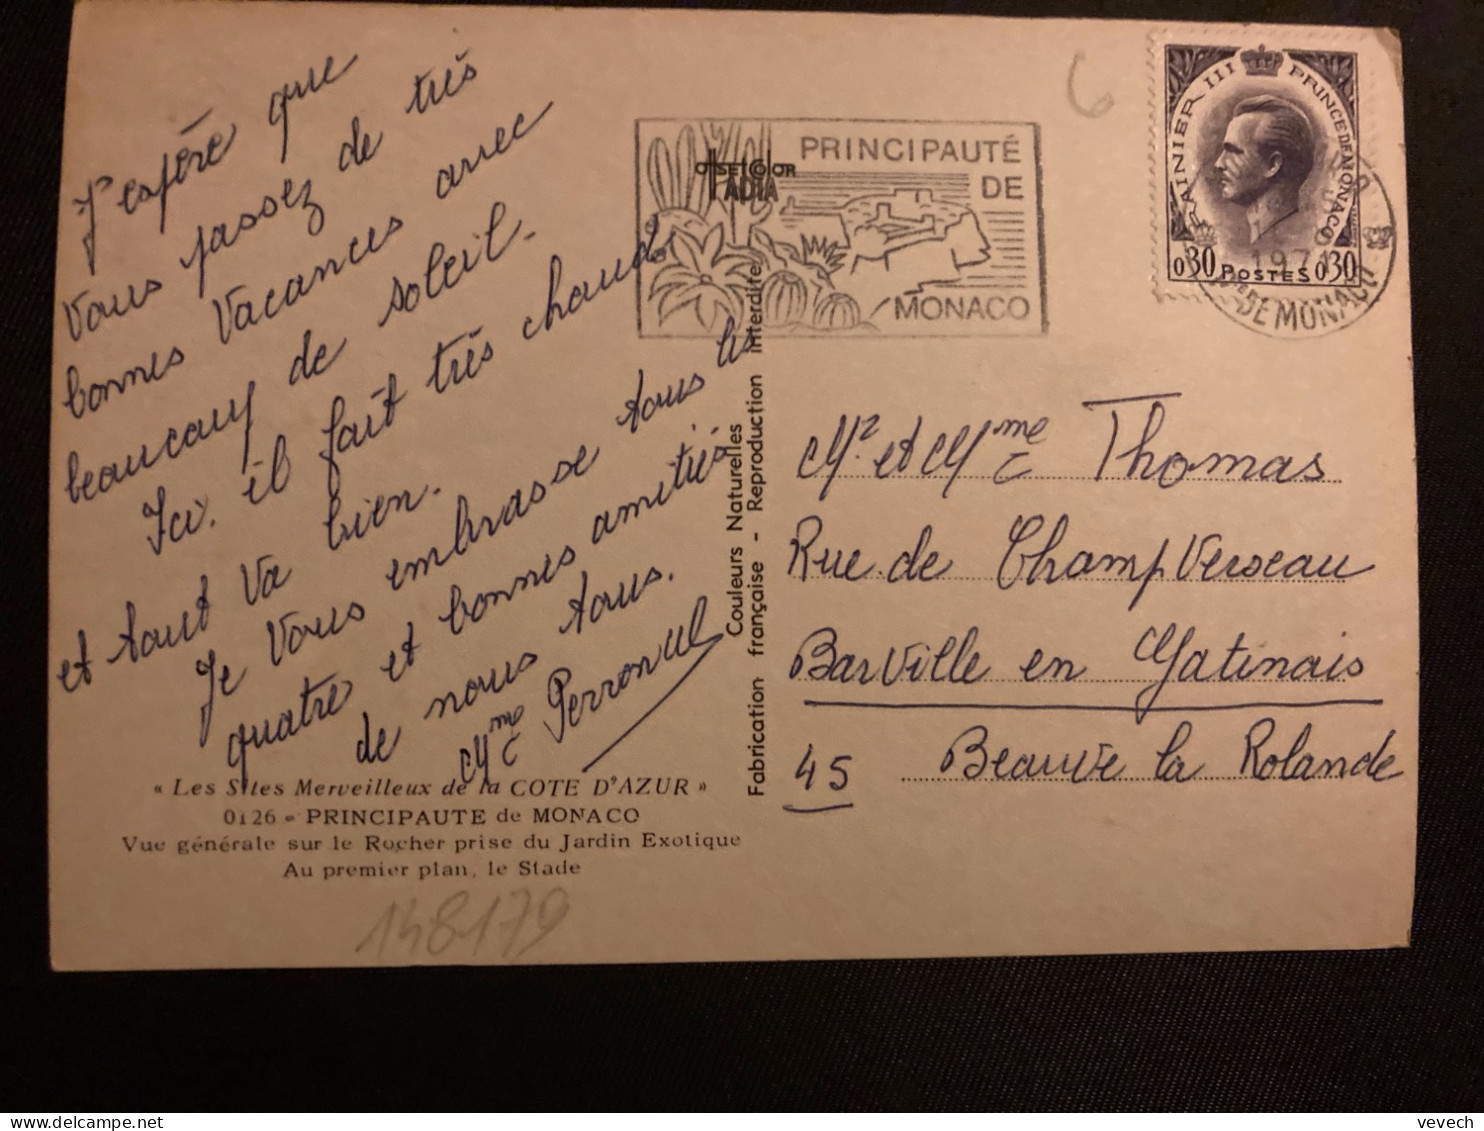 J'espère que
Vous passez de très
bonnes Vacances avec
beaucoup de soleil.
Ici, il fait très chaud
et tout va bien.
Je Vous embrasse tous les
quatre et bonnes amitiés
de nous tous.
Mme Perronul
« Les Sites Merveilleux de la COTE D'AZUR »
0126 - PRINCIPAUTE de MONACO
Vue générale sur le Rocher prise du Jardin Exotique
Au premier plan, le Stade
148179
Fabrication française - Reproduction interdite
Couleurs Naturelles
OFFSETCOLOR
RADIA
PRINCIPAUTÉ
DE
MONACO
6
RAINIER III PRINCE DE MONACO
0,30 POSTES 0,30
1971
DE MONACO
Mr et Mme Thomas
Rue de Champ Verseau
Barville en Gatinais
45 Beauve la Rolande